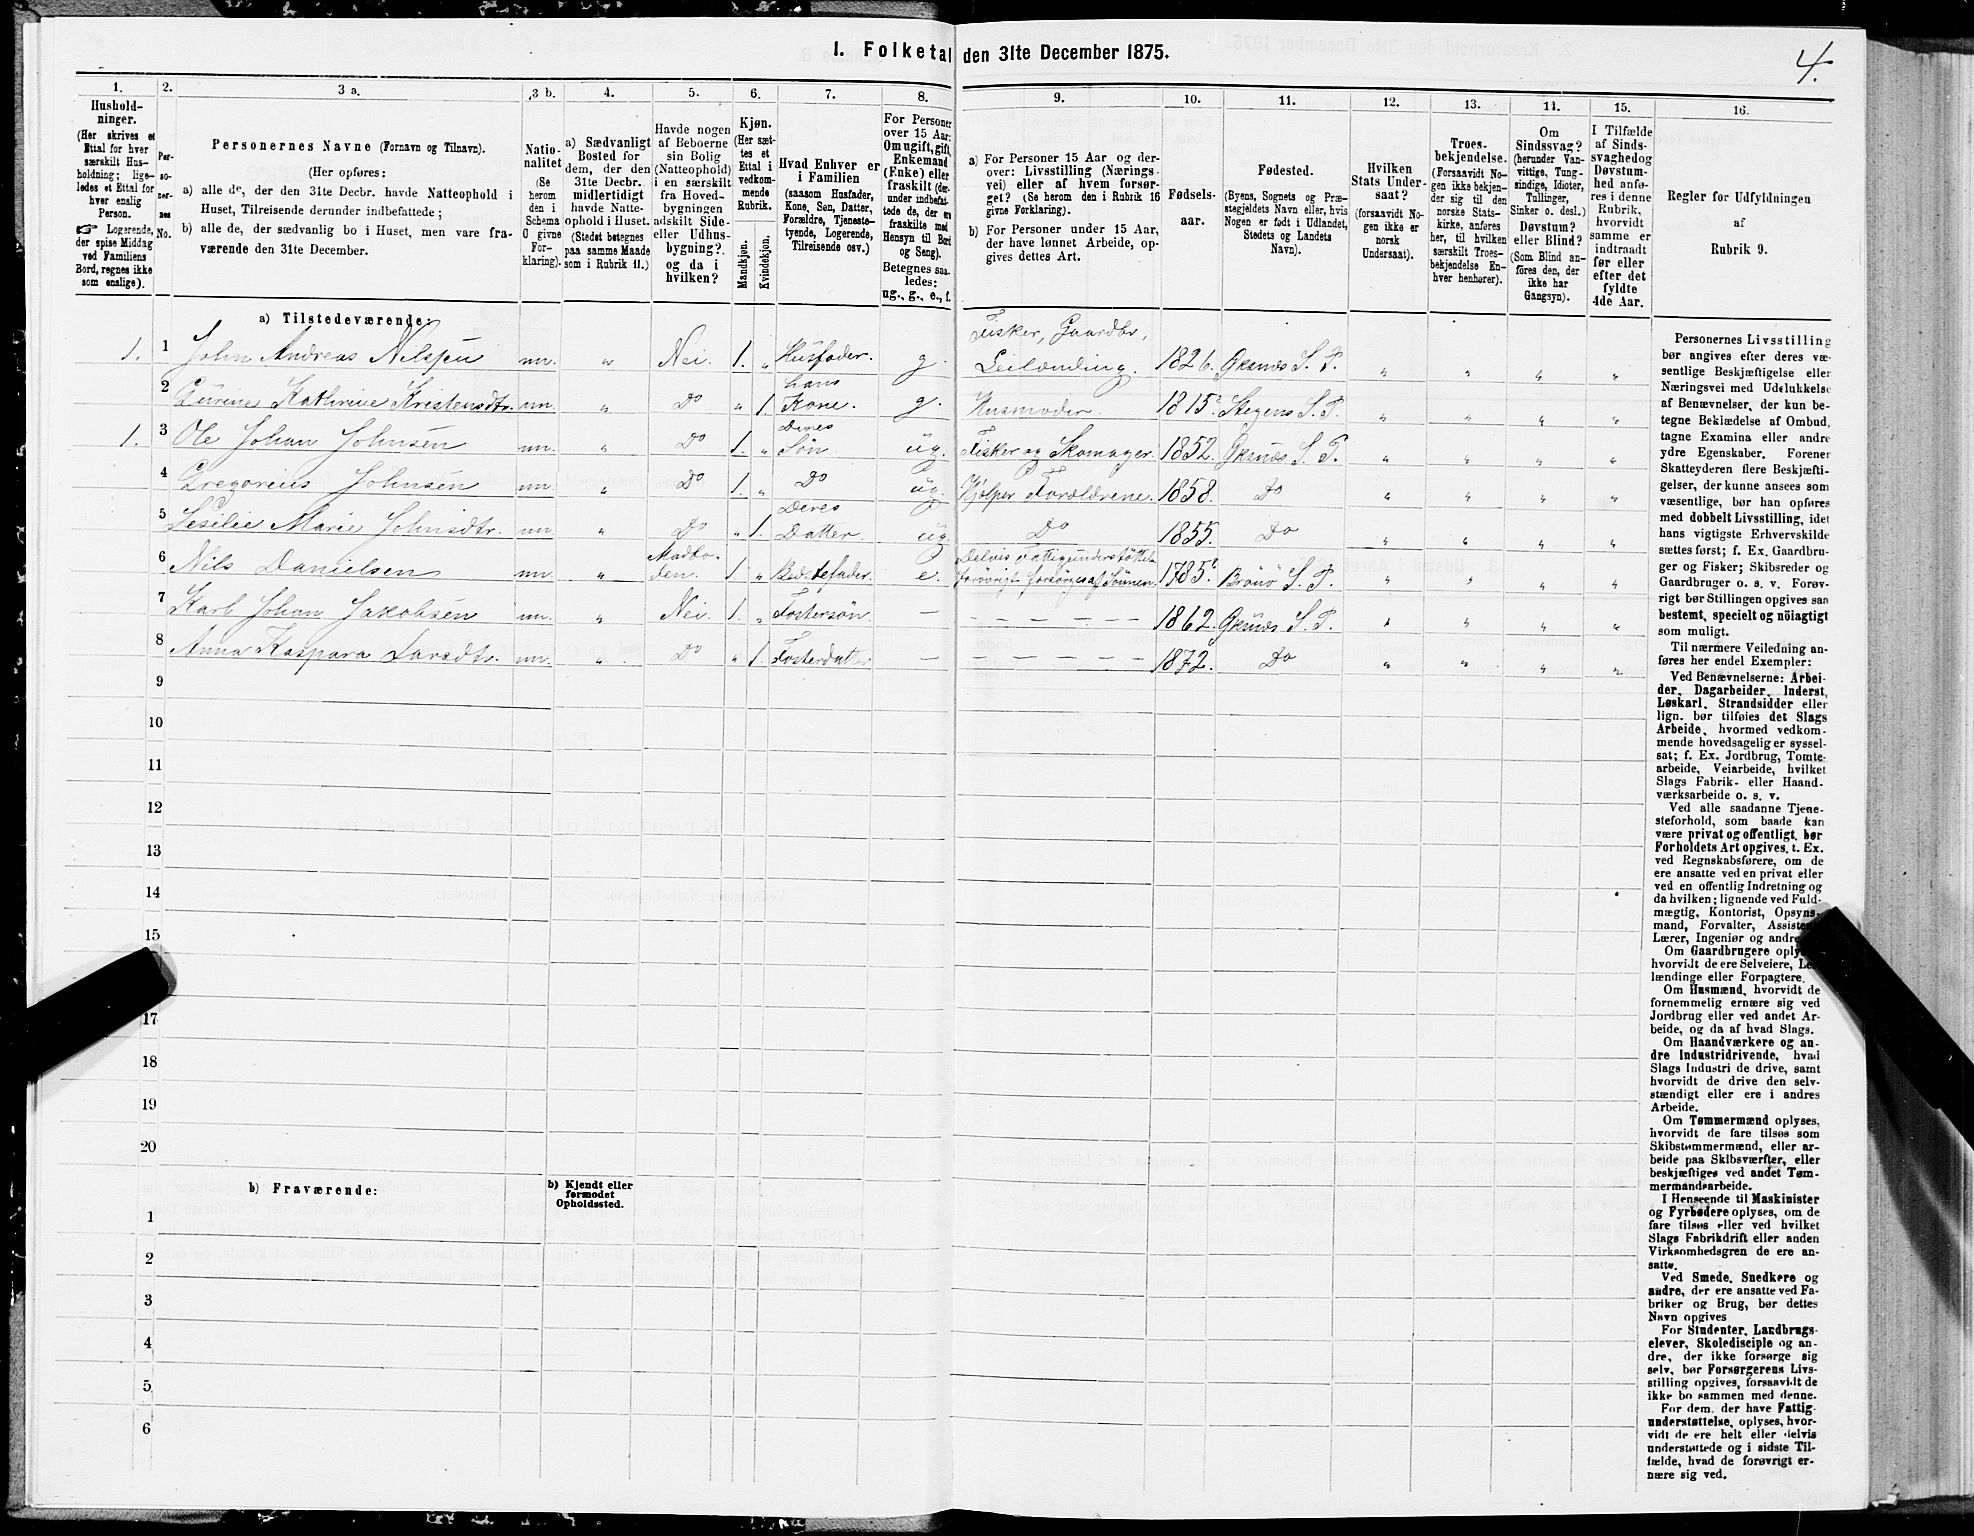 I. Folketal den 31te December 1875.
4.
1. 2. 3 a. 3 b. 4. 5. 6. 7. 8. 9. 10. 11. 12. 13. 14. 15. 16.
Hushold-
ninger.
(Her skrives et
Ettal for hver
særskilt Hus-
holdning; lige-
ledes et Ettal for
hver enslig
Person.
☞ Logerende,
der spise Middag
ved Familiens
Bord, regnes ikke
som enslige).
Per-
so-
ner-
nes
No.
Personernes Navne (Fornavn og Tilnavn).
(Her opføres:
a) alle de, der den 31te Decbr. havde Natteophold i
Huset, Tilreisende derunder indbefattede;
b) alle de, der sædvanlig bo i Huset, men vare fra-
værende den 31te December.
Natio-
nalitet
(Se
herom
den i
Schema
O givne
For-
klaring).
a) Sædvanligt
Bosted for
dem, der den
31te Decbr.
midlertidigt
havde Natte-
ophold i Huset.
(Stedet betegnes
paa samme Maade
som i Rubrik 11.)
Havde nogen
af Beboerne
sin Bolig
(Natteophold)
i en særskilt
fra Hoved-
bygningen
adskilt Side-
eller Udhus-
bygning?
og da i
hvilken?
Kjøn.
(Her sæt-
tes et
Ettal i
vedkom-
mende
Rubrik.
Mandkjøn.
Kvindekjøn.
Hvad Enhver er
i Familien
(saasom Husfader,
Kone, Søn, Datter,
Forældre, Tjeneste-
tyende, Logerende,
Tilreisende osv.)
For Personer
over 15 Aar:
Om ugift, gift,
Enkemand
(Enke) eller
fraskilt (der-
under indbefat-
tede de, der er
fraskilte med
Hensyn til Bord
og Seng).
Betegnes saa-
ledes:
ug., g., e., f.
a) For Personer 15 Aar og der-
over: Livsstilling (Nærings-
vei) eller af hvem forsør-
get? (Se herom den i Rubrik 16
givne Forklaring).
b) For Personer under 15 Aar,
der have lønnet Arbeide, op-
gives dettes Art.
Fødsels-
aar.
Fødested.
(Byens, Sognets og Præ-
stegjeldets Navn eller, hvis
Nogen er født i Udlandet,
Stedets og Landets
Navn).
Hvilken
Stats Under-
saat?
(forsaavidt No-
gen ikke er
norsk
Undersaat).
Troes-
bekjendelse.
(Forsaavidt No-
gen ikke bekjen-
der sig til den
norske Stats-
kirke, anføres
her, til hvilken
særskilt Troes-
bekjendelse En-
hver henhører).
Om
Sindssvag?
(herunder Van-
vittige, Tung-
sindige, Idioter,
Tullinger,
Sinker o. desl.)
Døvstum?
eller Blind?
(Som Blind an-
føres den, der
ikke har
Gangsyn).
I Tilfælde
af Sinds-
svaghed og
Døvstum-
hed anfø-
res i denne
Rubrik,
hvorvidt
samme er
indtraadt
før eller
efter det
fyldte
4de Aar.
Regler for Udfyldningen
af
Rubrik 9.
a) Tilstedeværende:
1. 1 John Andreas Nilssen nn. „ Nei. 1. „ Husfader. g. Fisker, Gaardbr, Leilænding. 1826. Øksnæs S. P. „ „ „ „
2 Gurine Kathrine Kristensdtr. nn. „ Do „ 1. hans Kone. g. Husmoder. 1815. Stegens S. P. „ „ „ „
1. 3 Ole Johan Johnsen nn. „ Do 1. „ Deres Søn ug. Fisker og Skomager. 1852. Øksnæs S. P. „ „ „ „
4 Gregorius Johnsen nn. „ Do 1. „ Do ug. Hjelper Forældrene. 1858. Do „ „ „ „
5 Cesilie Marie Johnsdtr. nn. „ Do „ 1. Deres Datter. ug. Do 1855. Do „ „ „ „
6 Nils Danielsen nn. „ 1. „ Bedstefader. e. Delvis Fattigunderstøttet forøvrigt forsørges af Sønnen. 1785. Brønø S. P. „ „ „ „
7 Karl Johan Jakobsen nn. „ Nei. 1. „ Fostersøn. — — — — — 1862. Øksnæs S. P. „ „ „ „
8 Anna Kaspara Larsdtr. nn. „ Do „ 1. Fosterdatter — — — — — 1872. Do „ „ „ „
9
10
11
12
13
14
15
17
18
19
20
b) Fraværende:
b) Kjendt eller
formodet
Opholdssted.
1
2
3
4
5
6
Personernes Livsstilling
bør angives efter deres væ-
sentlige Beskjæftigelse eller
Næringsvei med Udelukkelse
af Benævnelser, der kun be-
tegne Beklædelse af Ombud,
tagne Examina eller andre
ydre Egenskaber. Forener
Skatteyderen flere Beskjæfti-
gelser, der kunne ansees som
væsentlige, bør han opføres
med dobbelt Livsstilling, idet
hans vigtigste Erhvervskilde
sættes først; f. Ex. Gaardbru-
ger og Fisker; Skibsreder og
Gaardbruger o. s. v. Forøv-
rigt bør Stillingen opgives saa
bestemt, specielt og nöiagtigt
som muligt.
Til nærmere Veiledning an-
føres her endel Exempler:
Ved Benævnelserne: Arbei-
der, Dagarbeider, Inderst,
Løskarl, Strandsidder eller
lign. bør tilføies det Slags
Arbeide, hvormed vedkom-
mende hovedsagelig er syssel-
sat; f. Ex. Jordbrug, Tomte-
arbeide, Veiarbeide, hvilket
Slags Fabrik- eller Haand-
værksarbeide o. s. v.
Ved alle saadanne Tjene-
steforhold, som baade kan
være privat og offentligt, bør
Forholdets Art opgives, t. Ex.
ved Regnskabsførere, om de
ere ansatte ved en privat eller
ved en offentlig Indretning og
da hvilken; lignende ved Fuld-
mægtig, Kontorist, Opsyns-
mand, Forvalter,
Lærer, Ingeniør og andre
Om Gaardbrugere
hvorvidt de ere Selveiere,
lændinge eller Forpagtere.
Om Husmænd, hvorvidt de
fornemmelig ernære sig ved
Jordbrug eller ved andet Ar-
beide, og da af hvad Slags.
Om Haandværkere og an-
dre Industridrivende, hvad
Slags Industri de drive, samt
hvorvidt de drive den selv-
stændigt eller ere i andres
Arbeide.
Om Tømmermænd oplyses,
hvorvidt de fare tilsøs som
Skibstømmermænd, eller ar-
beide paa Skibsværfter, eller
beskjæftiges ved andet Tøm-
mermandsarbeide.
I Henseende til Maskinister
og Fyrbødere oplyses, om de
fare tilsøs eller ved hvilket
Slags Fabrikdrift eller anden
Virksomhedsgren de ere an-
satte.
Ved Smede, Snedkere og
andre, der ere ansatte ved Fa-
briker og Brug, bør dettes
Navn opgives
For Studenter, Landbrugs-
elever, Skoledisciple og an-
dre, der ikke forsørge sig
selv, bør Forsørgerens Livs-
stilling opgives, forsaavidt de
ikke bo sammen med denne.
For dem, der have Fattig-
understøttelse, oplyses, hvor-
vidt de ere helt eller delvis
understøttede og i sidste Til-
fælde, hvad de forøvrigt er-
nære sig ved.